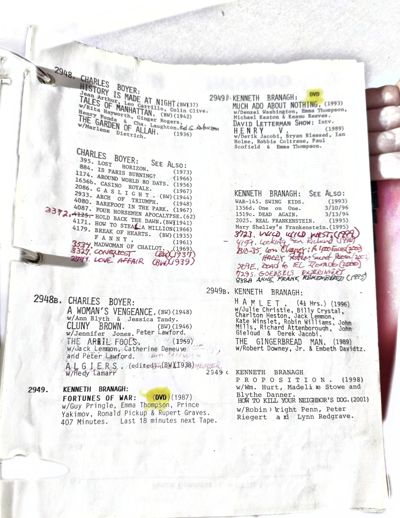 2948. CHARLES BOYER:
HISTORY IS MADE AT NIGHT (BW)37)
Jean Arthur, Leo Carrillo, Colin Clive.
TALES OF MANHATTAN. (BW) (1942)
w/Rita Hayworth, Ginger Rogers,
Henry Fonda & Cha. Laughton.
THE GARDEN OF ALLAH. (1936)
w/Marlene Dietrich.
CHARLES BOYER: SEE ALSO:
395. LOST HORIZON. (1973)
884. IS PARIS BURNING? (1966)
1174. AROUND WORLD 80 DAYS. (1956)
1656b. CASINO ROYALE. (1967)
2086. GASLIGHT. (BW) (1944)
2933. ARCH OF TRIUMPH. (1948)
4080. BAREFOOT IN THE PARK. (1967)
4087. FOUR HORSEMEN APOCALYPSE. (62)
2372. HOLD BACK THE DAWN. (BW) (1941)
4171. HOW TO STEAL A MILLION (1966)
4179. BREAK OF HEARTS. (BW) (1935)
FANNY. (1961)
MADWOMAN OF CHAILOT. (1969)
CONQUEST (BW) (1937)
LOVE AFFAIR (BW) (1939)
2948B. CHARLES BOYER:
A WOMAN'S VENGEANCE. (BW) (1948)
w/Ann Blyth & Jessica Tandy.
CLUNY BROWN. (BW) (1946)
w/Jennifer Jones, Peter Lawford.
THE APRIL FOOLS. (1969)
w/Jack Lemmon, Catherine Deneuve
and Peter Lawford.
ALGIERS. (BW) (1938)
w/Hedy Lamarr
2949. KENNETH BRANAGH:
FORTUNES OF WAR: (DVD) (1987)
w/Guy Pringle, Emma Thompson, Prince
Yakimov, Ronald Pickup & Rupert Graves.
407 Minutes. Last 18 minutes next Tape.
2949 KENNETH BRANAGH: DVD
MUCH ADO ABOUT NOTHING. (1993)
w/Denzel Washington, Emma Thompson,
Michael Keaton & Keanu Reeves.
DAVID LETTERMAN SHOW: INTV.
HENRY V. (1989)
w/Derek Jacobi, Bryan Blessed, Ian
Holme, Robbie Coltrane, Paul
Scofield & Emma Thompson.
KENNETH BRANAGH: SEE ALSO:
WAR-145. SWING KIDS. (1993)
1356d. One on One. 3/10/96
1519c. DEAD AGAIN. 3/13/94
2025. REAL FRANKENSTEIN. (1995)
Mary Shelley's Frankenstein. (1993)
3723. WILD WILD WEST (1999)
2949B. KENNETH BRANAGH:
HAMLET. (4½ Hrs.) (1996)
w/Julie Christie, Billy Crystal,
Charlton Heston, Jack Lemmon,
Kate Winslet, Robin Williams, John
Mills, Richard Attenborough, John
Gielgud & Derek Jacobi.
THE GINGERBREAD MAN. (1989)
w/Robert Downey, Jr. & Embeth Davidtz.
2949 c KENNETH BRANAGH
PROPOSITION. (1998)
w/Wm. Hurt, Madeline Stowe and
Blythe Danner.
HOW TO KILL YOUR NEIGHBOR'S DOG. (2001)
w/Robin Wright Penn, Peter
Riegert and Lynn Redgrave.